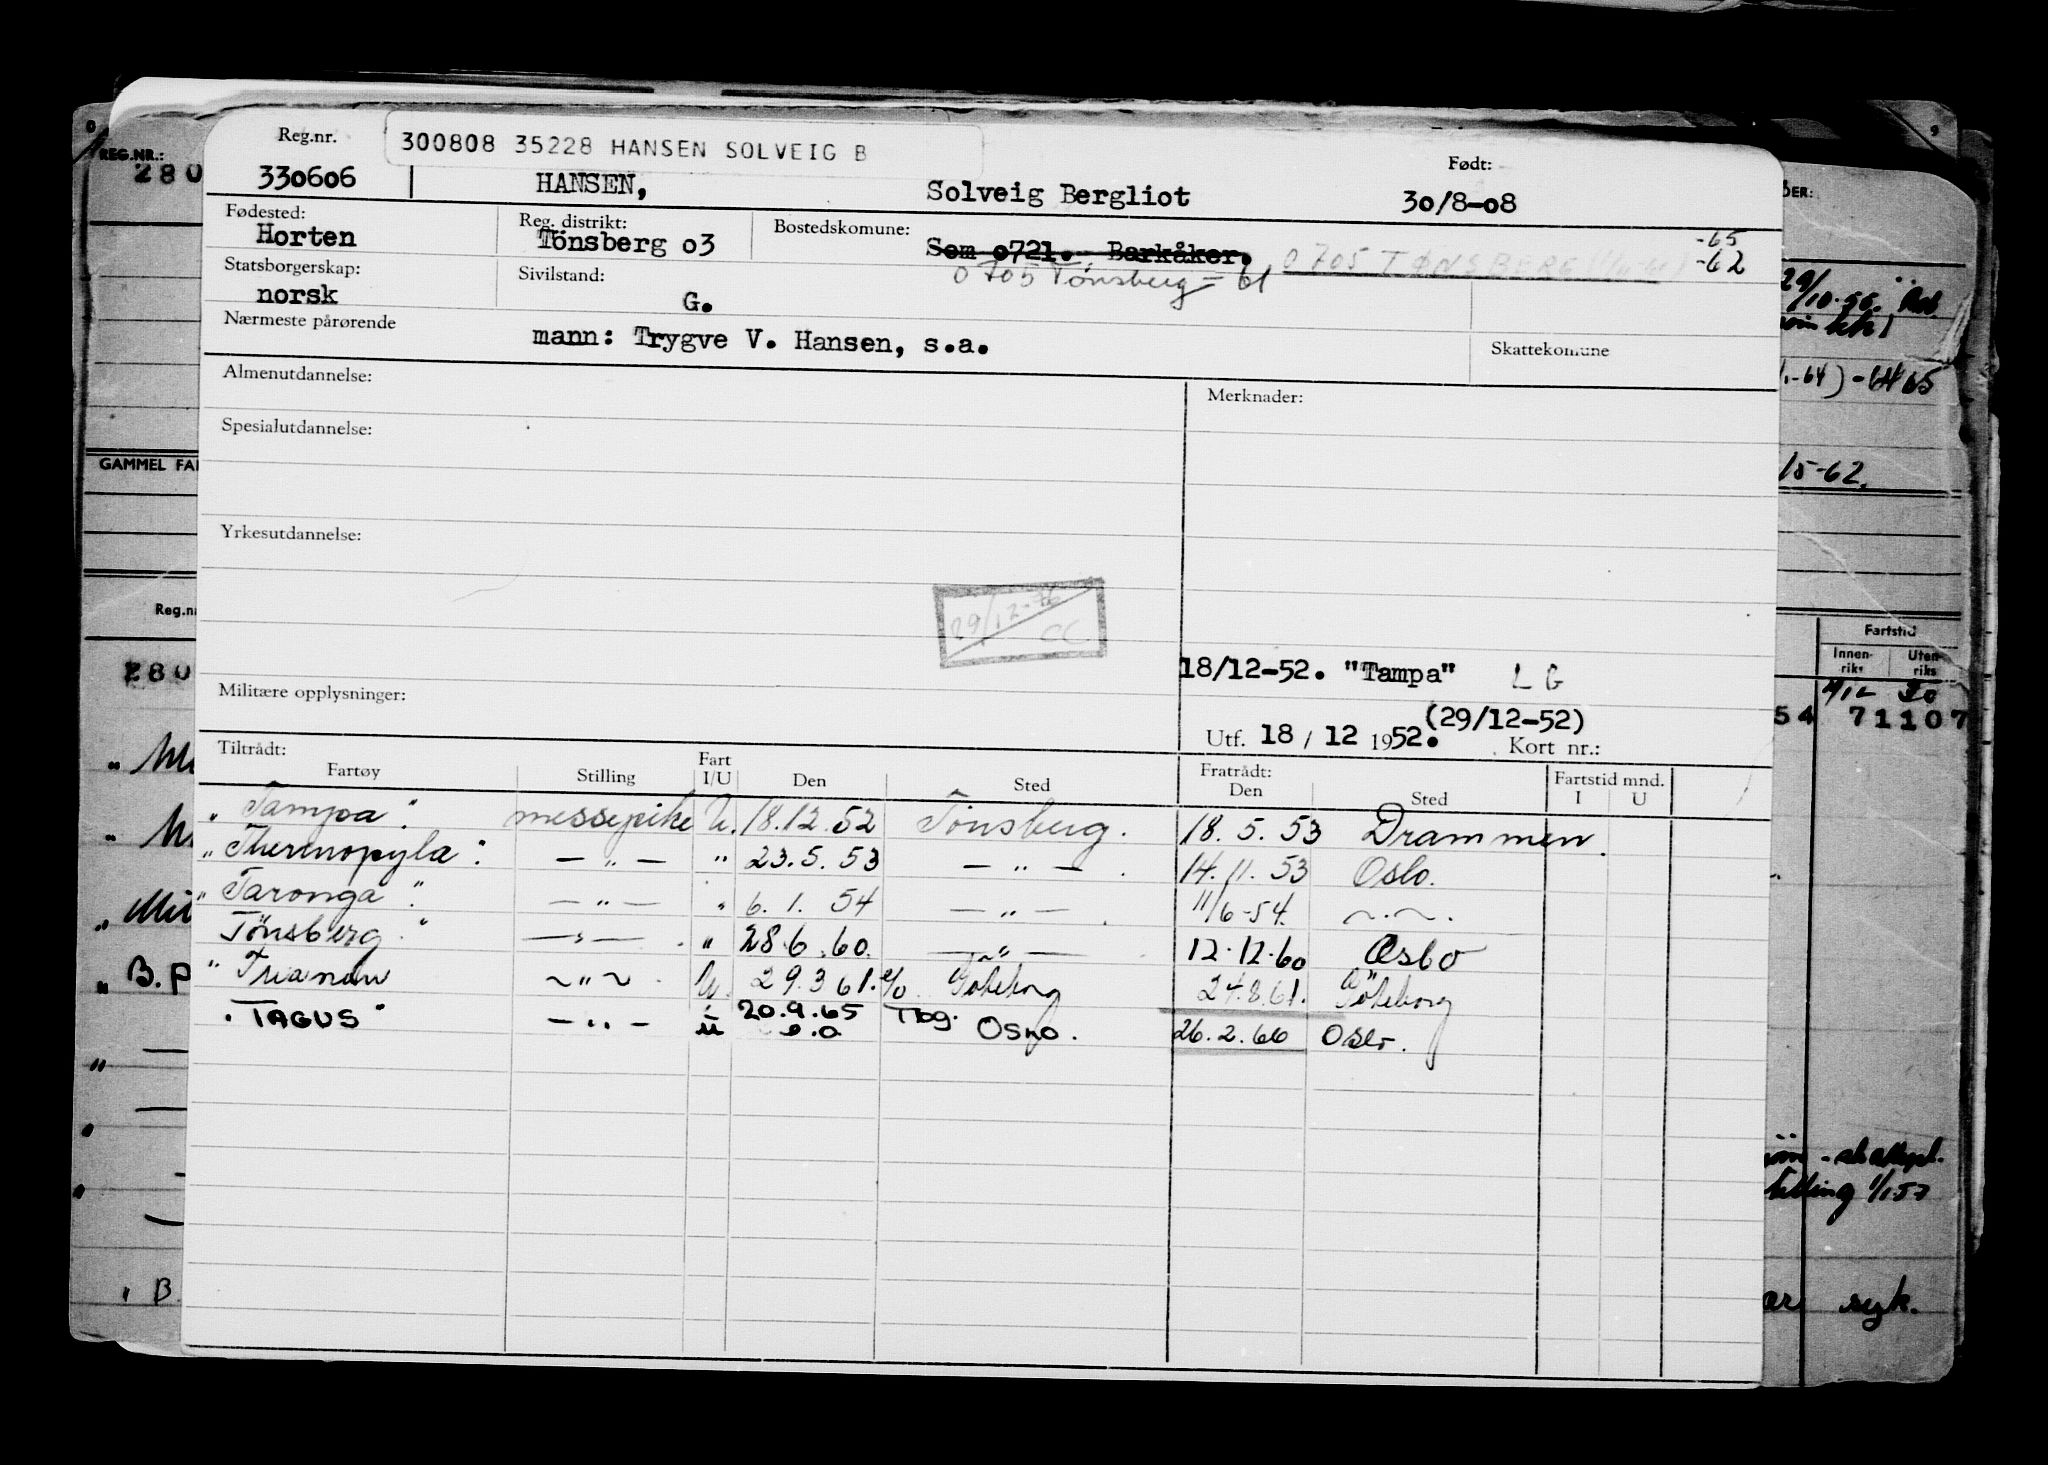 300808 35228 HANSEN SOLVEIG B
Reg.nr. Født:
330606 HANSEN, Solveig Bergliot 30/8-08
Fødested: Reg. distrikt: Bostedskomune:
Horten Tönsberg 03 Sem 0721. Barkåker. 0705 TØNSBERG -65
0705 Tønsberg - 61 -62
Statsborgerskap: Sivilstand:
norsk G.
Nærmeste pårørende
mann: Trygve V. Hansen, s.a.
Skattekomune
Almenutdannelse: Merknader:
Spesialutdannelse:
Yrkesutdannelse:
29/12-76
CC
18/12-52. "Tampa" L G
Militære opplysninger:
(29/12-52)
Utf. 18 / 12 1952. Kort nr.:
Tiltrådt: Fratrådt: Fartstid mnd.
Fartøy Stilling Fart I/U Den Sted Den Sted I U
"Tampa". messepike U. 18.12.52 Tönsberg. 18. 5. 53 Drammen.
"Thermopylæ". — " — " 23.5.53 — " — . 14.11.53 Oslo.
"Taronga". — " — " 6. 1. 54 — " — . 11/6-54. ~ . ~ .
Tönsberg." — " — . " 28.6.60. — " — 12.12.60 Oslo
"Trianon ~ " ~ . U. 29.3 61. e/o Göteborg 24.8.61. Göteborg
"TAGUS" — " — ü 20.9.65 Tbg. 26.2.66 Oslo.
e.o Oslo.
REG.NR.:
280
GAMMEL FA
Reg.n
280
B. P
" B
BER:
29/10-56.
-64) - 64 65
15-62.
Fartstid
Innen-riks Uten-riks
54 71107
syk.